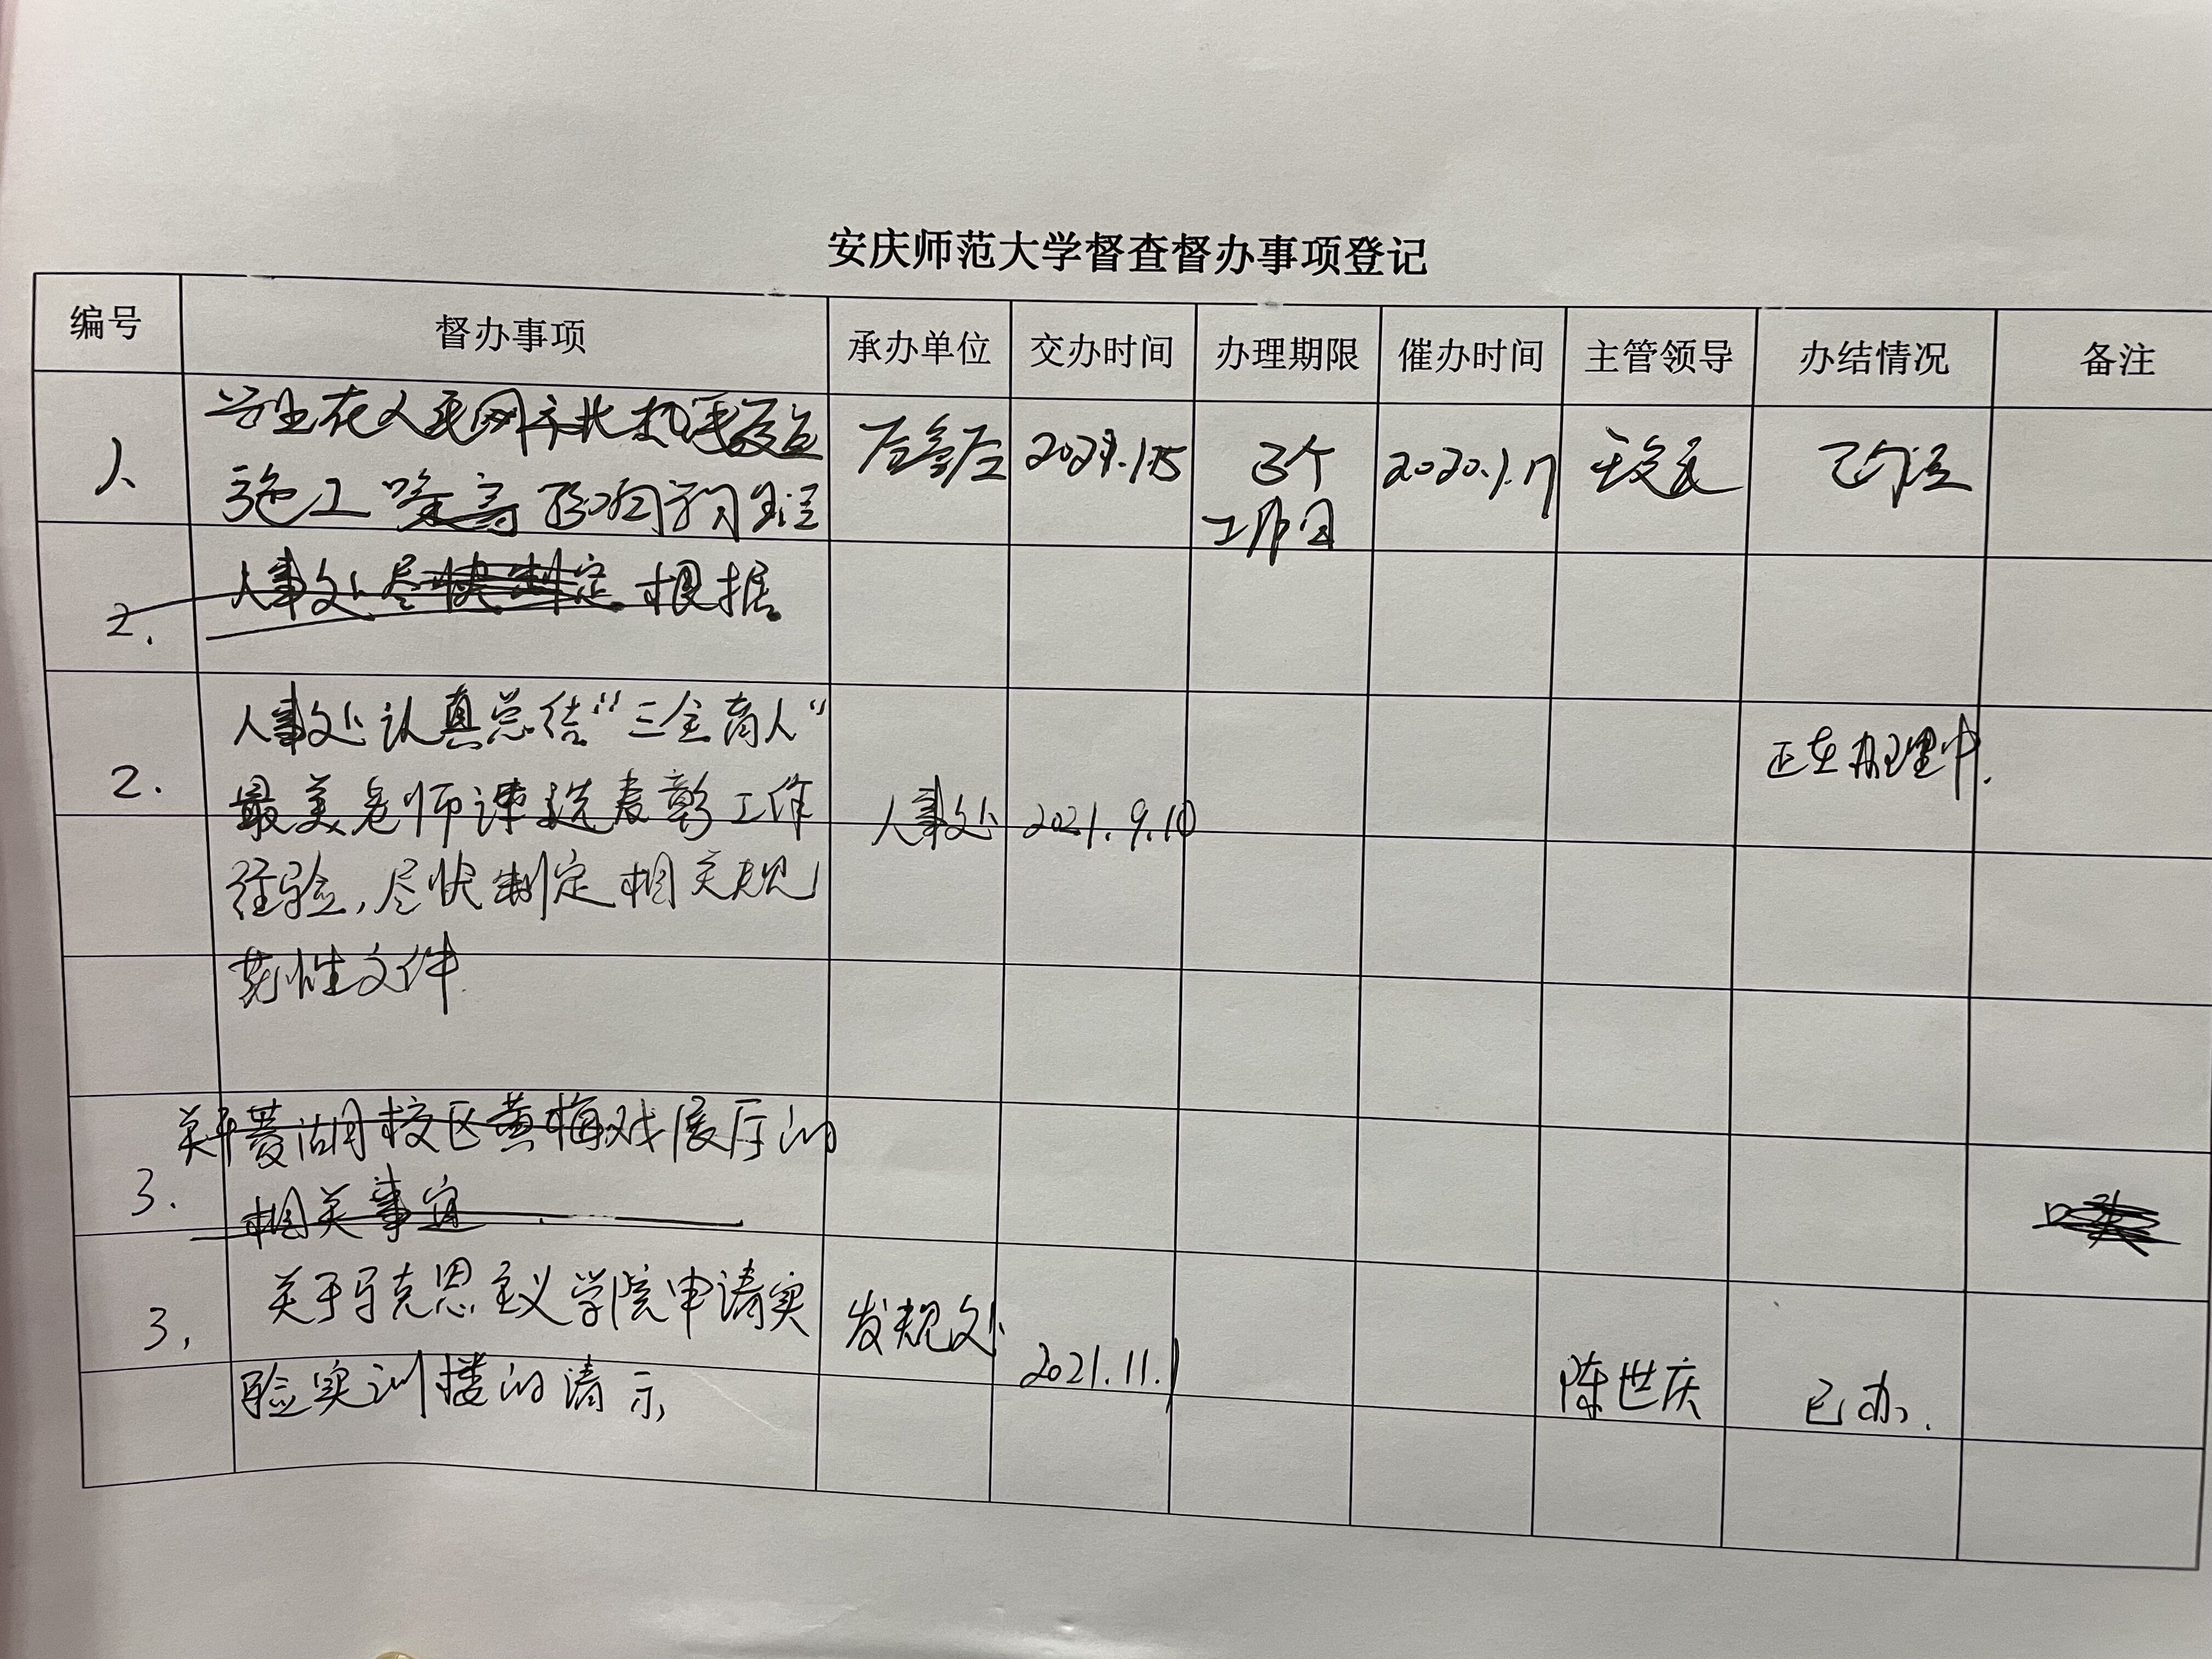 安庆师范大学督查督办事项登记
编号 督办事项 承办单位 交办时间 办理期限 催办时间 主管领导 办结情况 备注
1、
学生在人民网
施工噪音影响学习生活
后勤处
3个
工作日
2020.1.17
已办结
2.
人事处尽快制定 根据
2.
人事处认真总结“三全育人”
最美老师评选表彰工作
经验，尽快制定相关规
范性文件
人事处 2021.9.10
正在办理中.
3.
关于菱湖校区黄梅戏展厅的
相关事宜
3.
关于马克思主义学院申请实
验实训楼的请示
发规处
2021.11.1
陈世庆
已办.